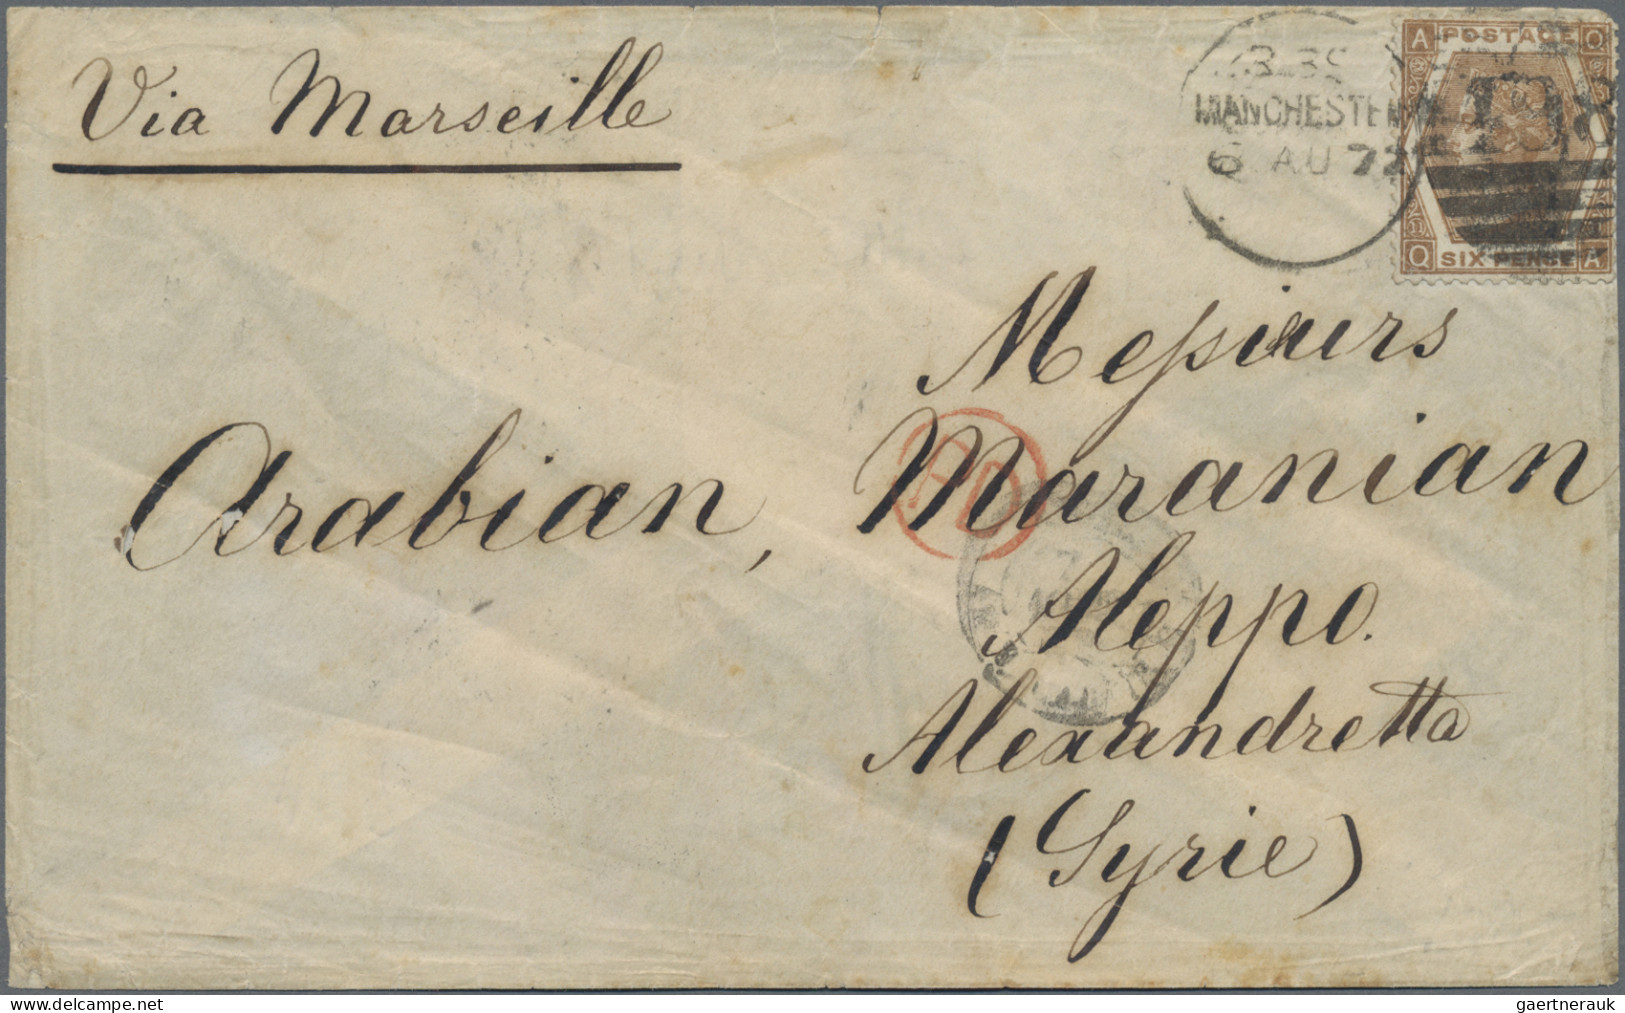 Via Marseille
MANCHESTER
6 AU 72
A POSTAGE Q
498
11
Q SIX PENCE A
Messieurs
Arabian, Maranian
PD
Aleppo.
Alexandretta
(Syrie)
gaertnerauk